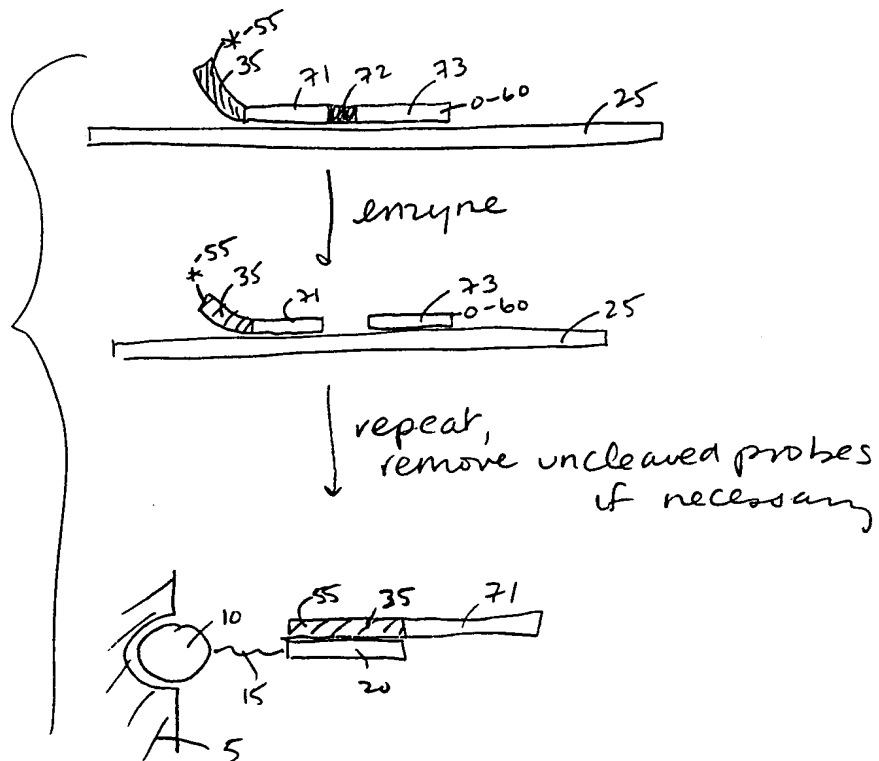 *-55
35
71 72 73
0-60
25
enzyme
*-55
35
71
73
0-60
25
repeat,
remove uncleaved probes
if necessary
10
55 35 71
15
20
5